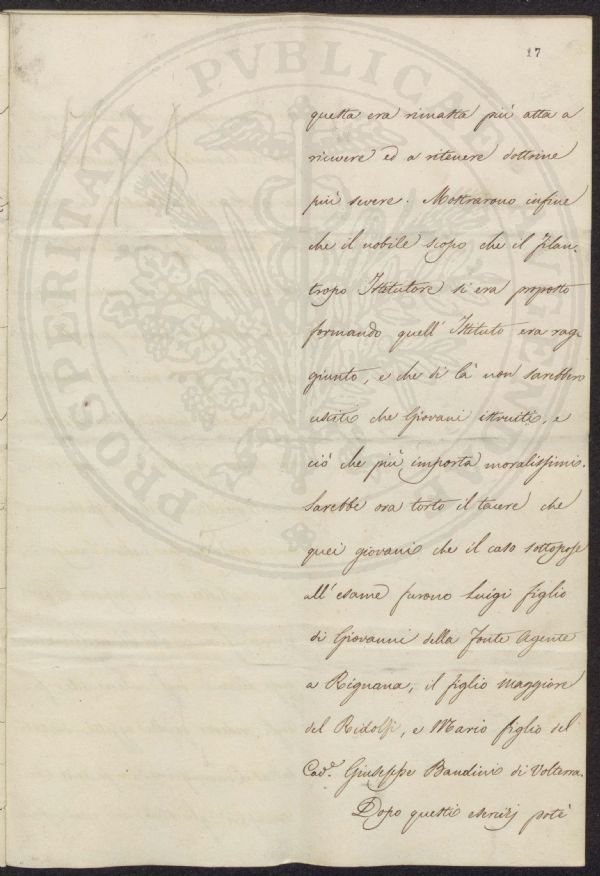 17
questa era rimasta più atta a
ricevere ed a ritenere dottrine
più severe. Mostrarono infine
che il nobile scopo che il filan-
tropo Istitutore si era proposto
formando quell' Istituto era rag-
giunto, e che di là non sarebbero
usciti che Giovani istruiti, e
ciò che più importa moralissimi.
Sarebbe ora torto il tacere che
quei giovani che il caso sottopose
all' esame furono Luigi figlio
di Giovanni della Fonte Agente
a Rignana, il figlio maggiore
del Ridolfi, e Mario figlio del
Cav.e Giuseppe Bandini di Volterra.
Dopo questi esercizj potè
PROSPERITATI PVBLICAE AVGENDAE